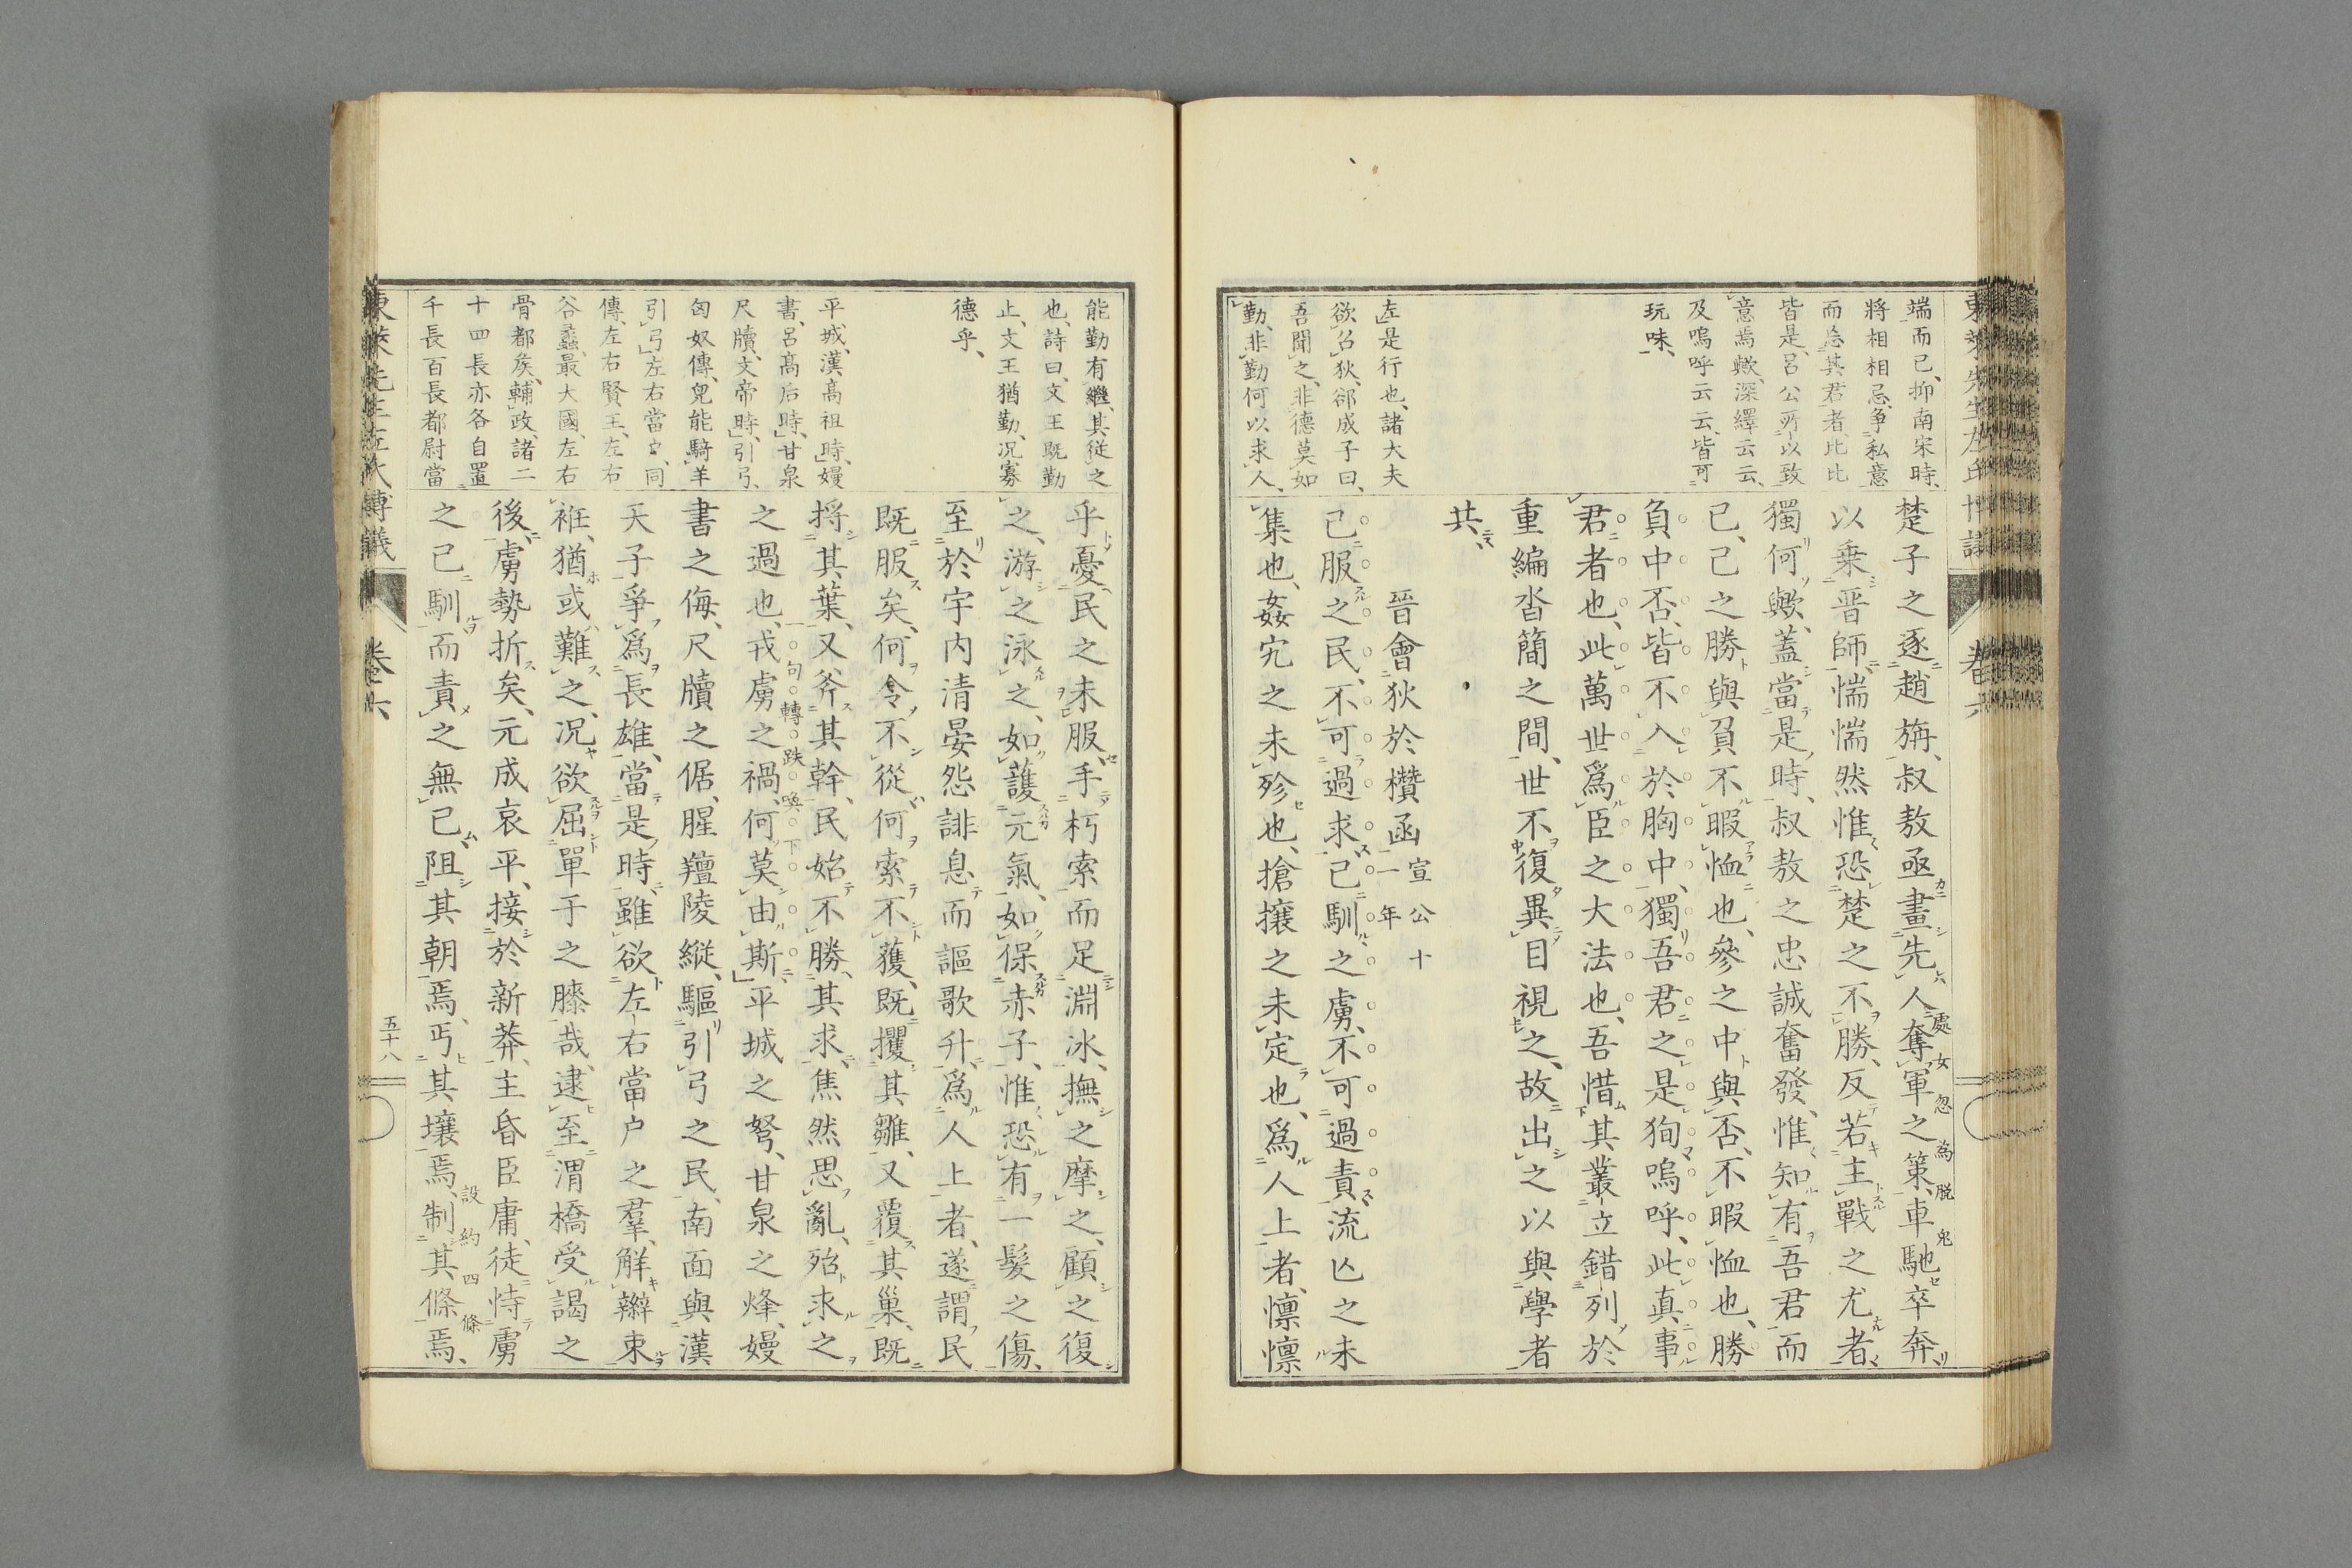 東萊先生左氏博議
卷六
端而已、抑南宋時、
將相相忌、爭私意
而忘其君者、比比
皆是、呂公所以致
意焉歟、深繹云云、
及嗚呼云云、皆可
玩味、
楚子之逐趙旃、叔敖亟畫先人奪軍之策、車馳卒奔
處女忽為脫兔
以乗晋師、惴惴然惟恐楚之不勝、反若主戰之尤者、
獨何歟、蓋當是時、叔敖之忠誠奮發、惟知有吾君而
已、己之勝與負不暇恤也、參之中與否、不暇恤也、勝
負中否、皆不入於胸中、獨吾君之是狥、嗚呼、此真事
君者也、此萬世爲臣之大法也、吾惜其叢立錯列於
重編沓簡之間、世不復異目視之、故出之以與學者
共、
晉會狄於欑函 宣公十一年
左是行也、諸大夫
欲召狄、郤成子曰、
吾聞之、非德莫如
勤、非勤何以求人、
己服之民、不可過求、已馴之虜、不可過責、流亾之未
集也、姦宄之未殄也、搶攘之未定也、爲人上者、懍懍
能勤有繼、其從之
也、詩曰、文王既勤
止、文王猶勤、況寡
德乎、
乎憂民之未服、手朽索而足淵冰、撫之摩之、顧之復
之、游之泳之、如護元氣、如保赤子、惟恐有一髮之傷、
至於宇内清晏怨誹息而謳歌升、爲人上者、遂謂民
既服矣、何令不從、何索不獲、既攫其雛、又覆其巢、既
平城、漢高祖時、嫚
書、呂高后時、甘泉
尺牘、文帝時、引弓、
匈奴傳、兒能騎羊
引弓、左右當戶、同
傳、左右賢王、左右
谷蠡、最大國、左右
骨都矦、輔政、諸二
十四長亦各自置
千長百長都尉當
捋其葉、又斧其幹、民始不勝其求、焦然思亂、殆求之
之過也、戎虜之禍、何莫由斯、平城之弩、甘泉之烽、嫚
句轉跌喚下
書之侮、尺牘之倨、腥羶陵縱、驅引弓之民、南面與漢
天子爭爲長雄、當是時、雖欲左右當户之羣、解辮束
袵、猶或難之、況欲屈單于之膝哉、逮至渭橋受謁之
後、虜勢折矣、元成哀平、接於新莽、主昏臣庸、徒恃虜
之已馴、而責之無已、阻其朝焉、丐其壤焉、制其條焉、
設約四條
東萊先生左氏博議
卷六
五十八